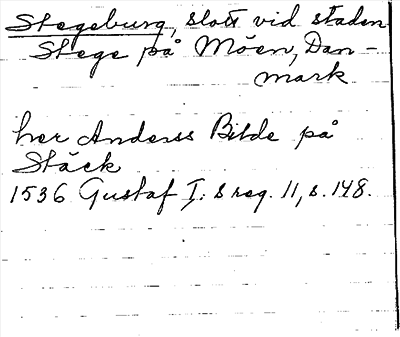 Stegeburg, slott vid staden
Stege på Möen, Dan-
mark
her Anderss Bilde på
Stäck
1536 Gustaf I:s reg. 11, s. 148.